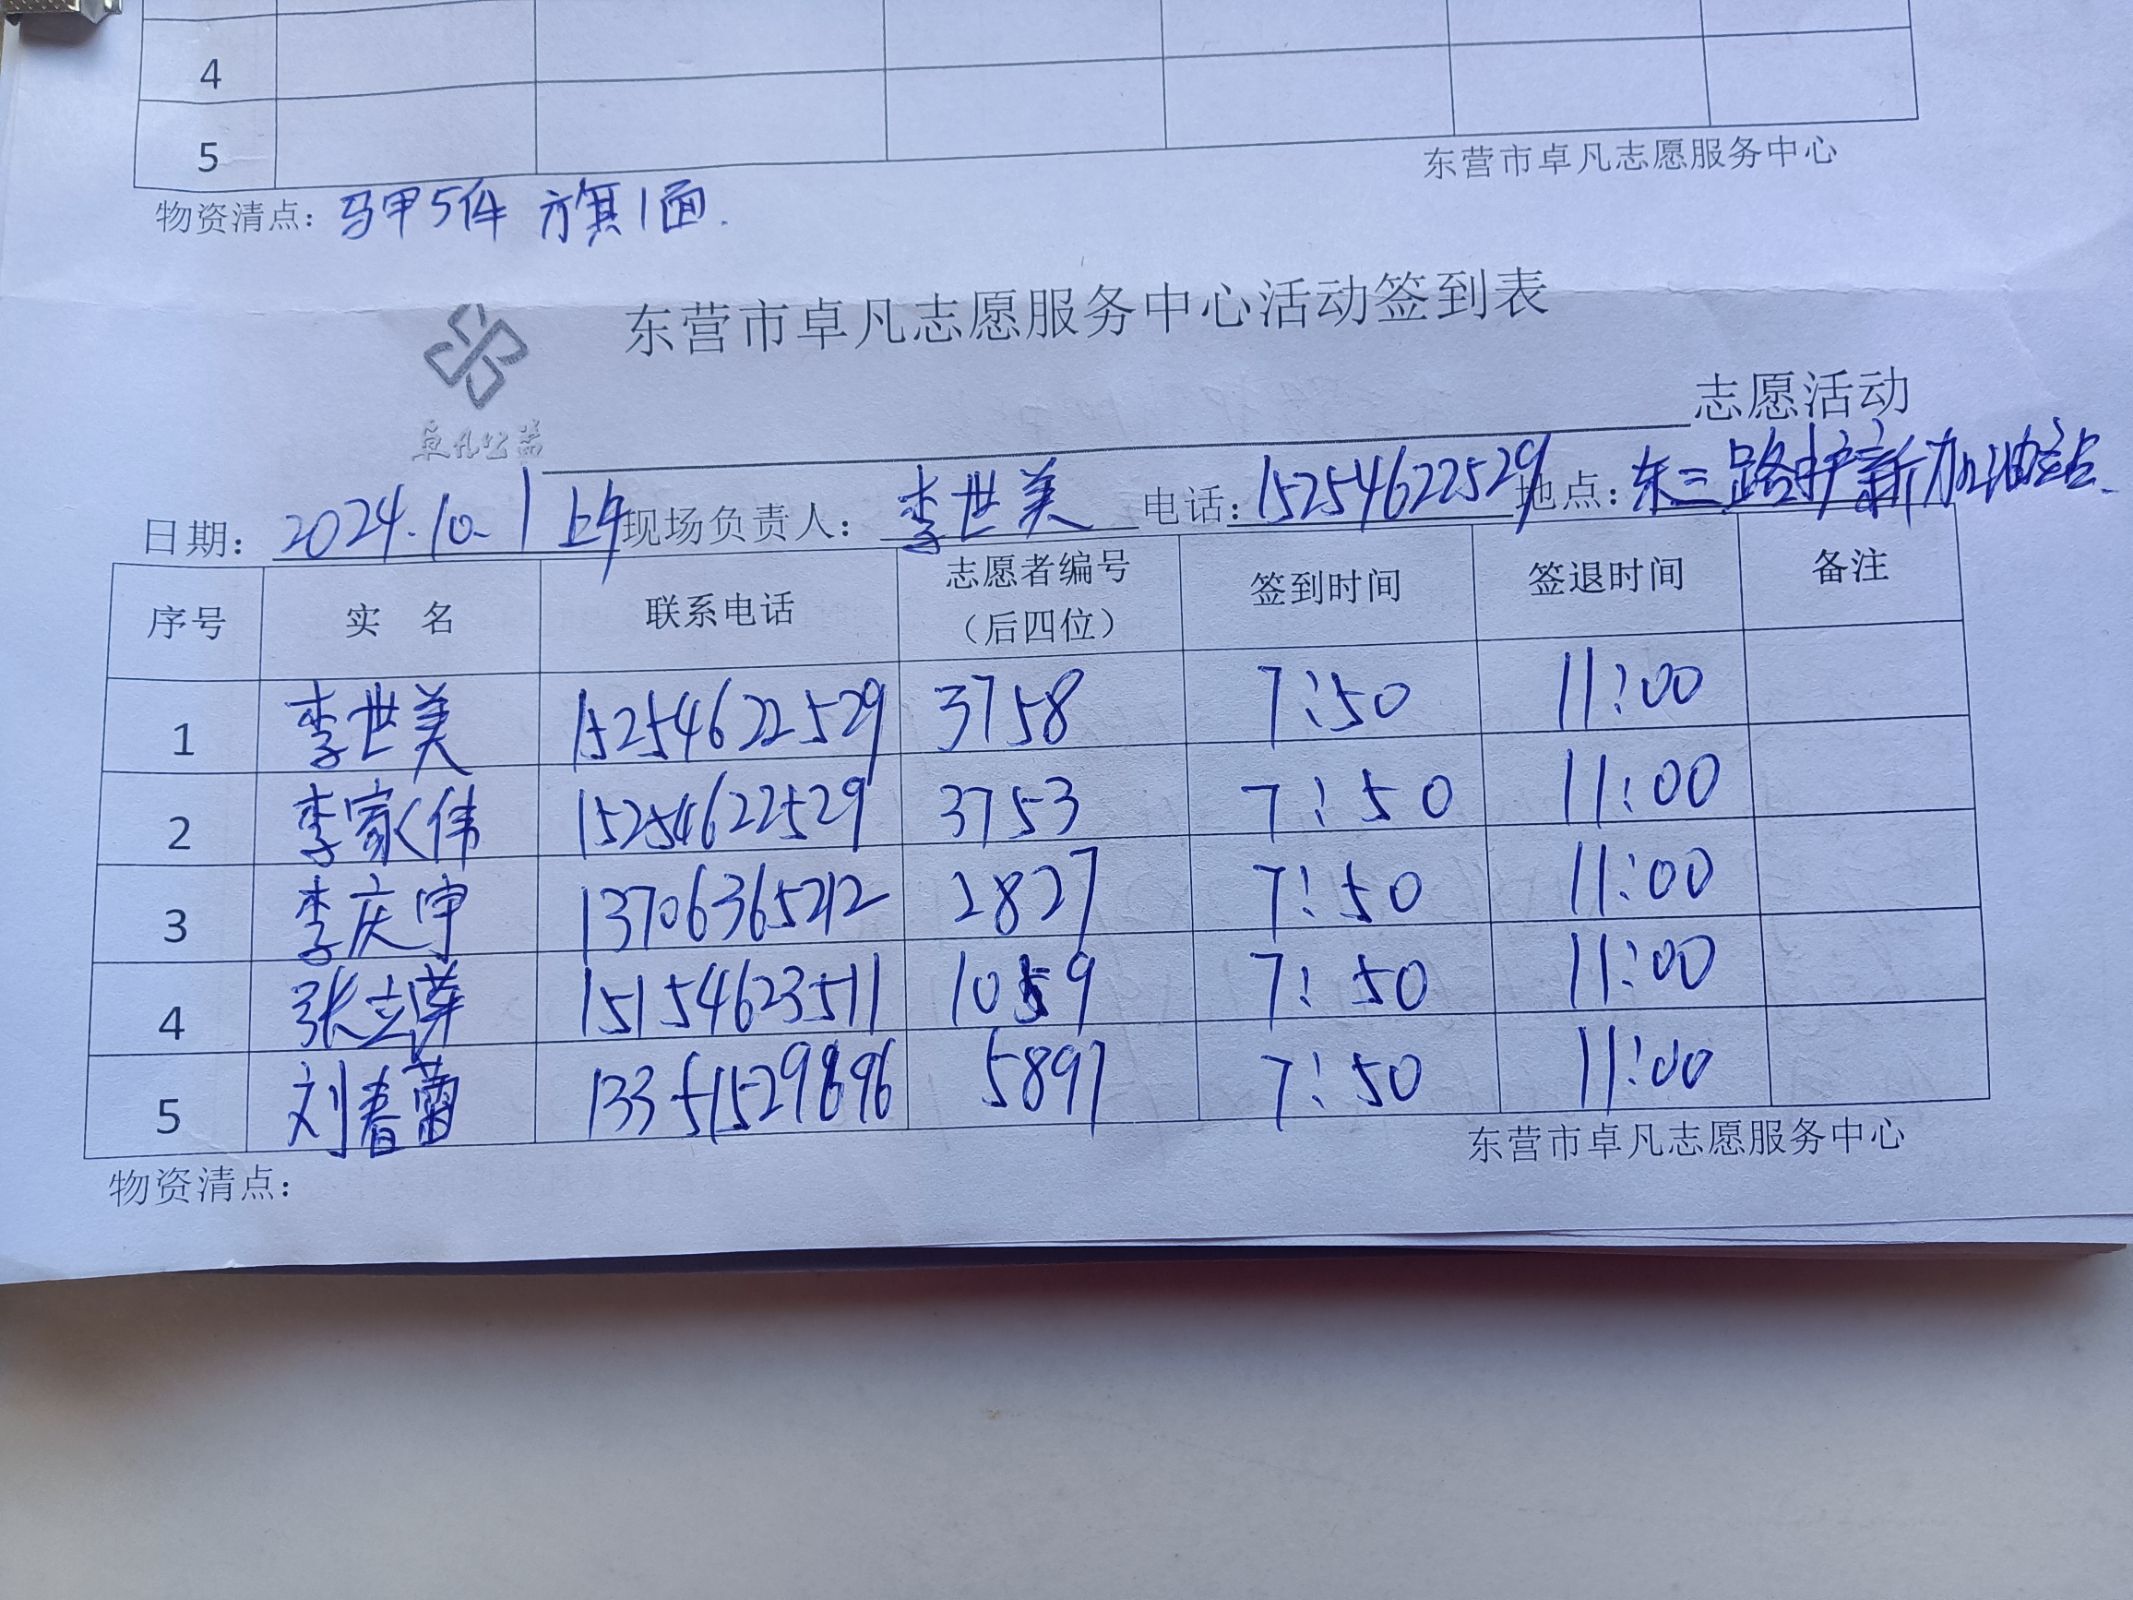 4
5
东营市卓凡志愿服务中心
物资清点：马甲5件 旗1面.
东营市卓凡志愿服务中心活动签到表
卓凡公益
志愿活动
日期：2024.10.1上午 现场负责人：李世美 电话：15254622529 地点：东三路 新加油站
序号 实 名 联系电话 志愿者编号（后四位） 签到时间 签退时间 备注
1 李世美 15254622529 3758 7:50 11:00
2 李家伟 15254622529 3753 7:50 11:00
3 李庆申 13706365212 2827 7:50 11:00
4 张立萍 15154623511 1059 7:50 11:00
5 刘春蕾 5897 7:50 11:00
东营市卓凡志愿服务中心
物资清点：